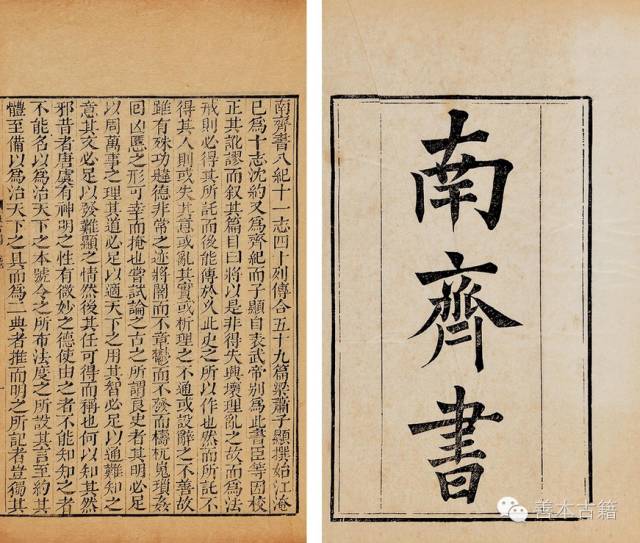 南齊書
南齊書八紀十一志四十列傳合五十九篇梁蕭子顯撰始江淹
巳爲十志沈約又爲齊紀而子顯自表武帝别爲此書臣等因校
正其訛謬而叙其篇目曰將以是非得失興壞理亂之故而爲法
戒則必得其所託而後能傳於久此史之所以作也然而所託不
得其人則或失其意或亂其實或析理之不通或設辭之不善故
雖有殊功韙德非常之迹將闇而不章鬱而不發而檮杌嵬瑣姦
回凶慝之形可幸而掩也嘗試論之古之所謂良史者其明必足
以周萬事之理其道必足以適天下之用其智必足以通難知之
意其文必足以發難顯之情然後其任可得而稱也何以知其然
邪昔者唐虞有神明之性有微妙之德使由之者不能知知之者
不能名以爲治天下之本號令之所布法度之所設其言至約其
體至備以爲治天下之具而爲二典者推而明之所記者豈獨其
善本古籍